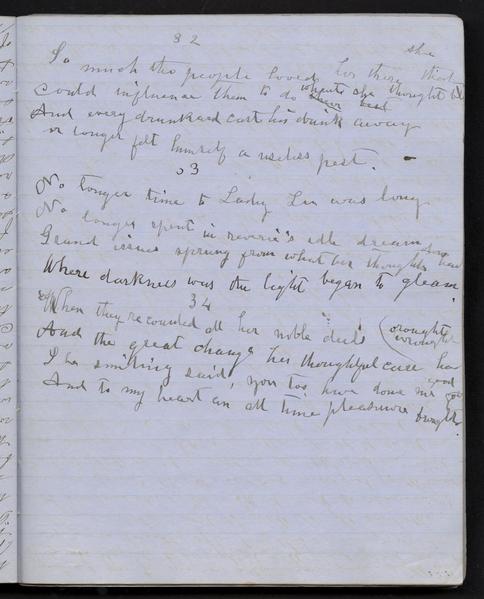 32
So much the people loved her there that she
could influence them to do whate'er she thought best
And every drunkard cast his drink away
or longer felt himself a useless pest.
33
No longer time to Lady Lee was long
No longer spent in reverie's idle dream
Grand issues sprung from what her thoughts had
Where darkness was the light began to gleam
34
When they recounted all her noble deeds
And the great change her thoughtful care had wrought
She smiling said, you too have done me good
And to my heart an all time pleasure brought.